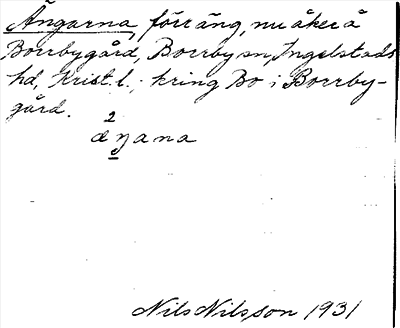 Ängarna, förr äng, nu åker å
Borrbygård, Borrby sn, Ingelstads
hd, Krist. l.; kring Bo i Borrby-
gård.
2
æŋana
Nils Nilsson 1931